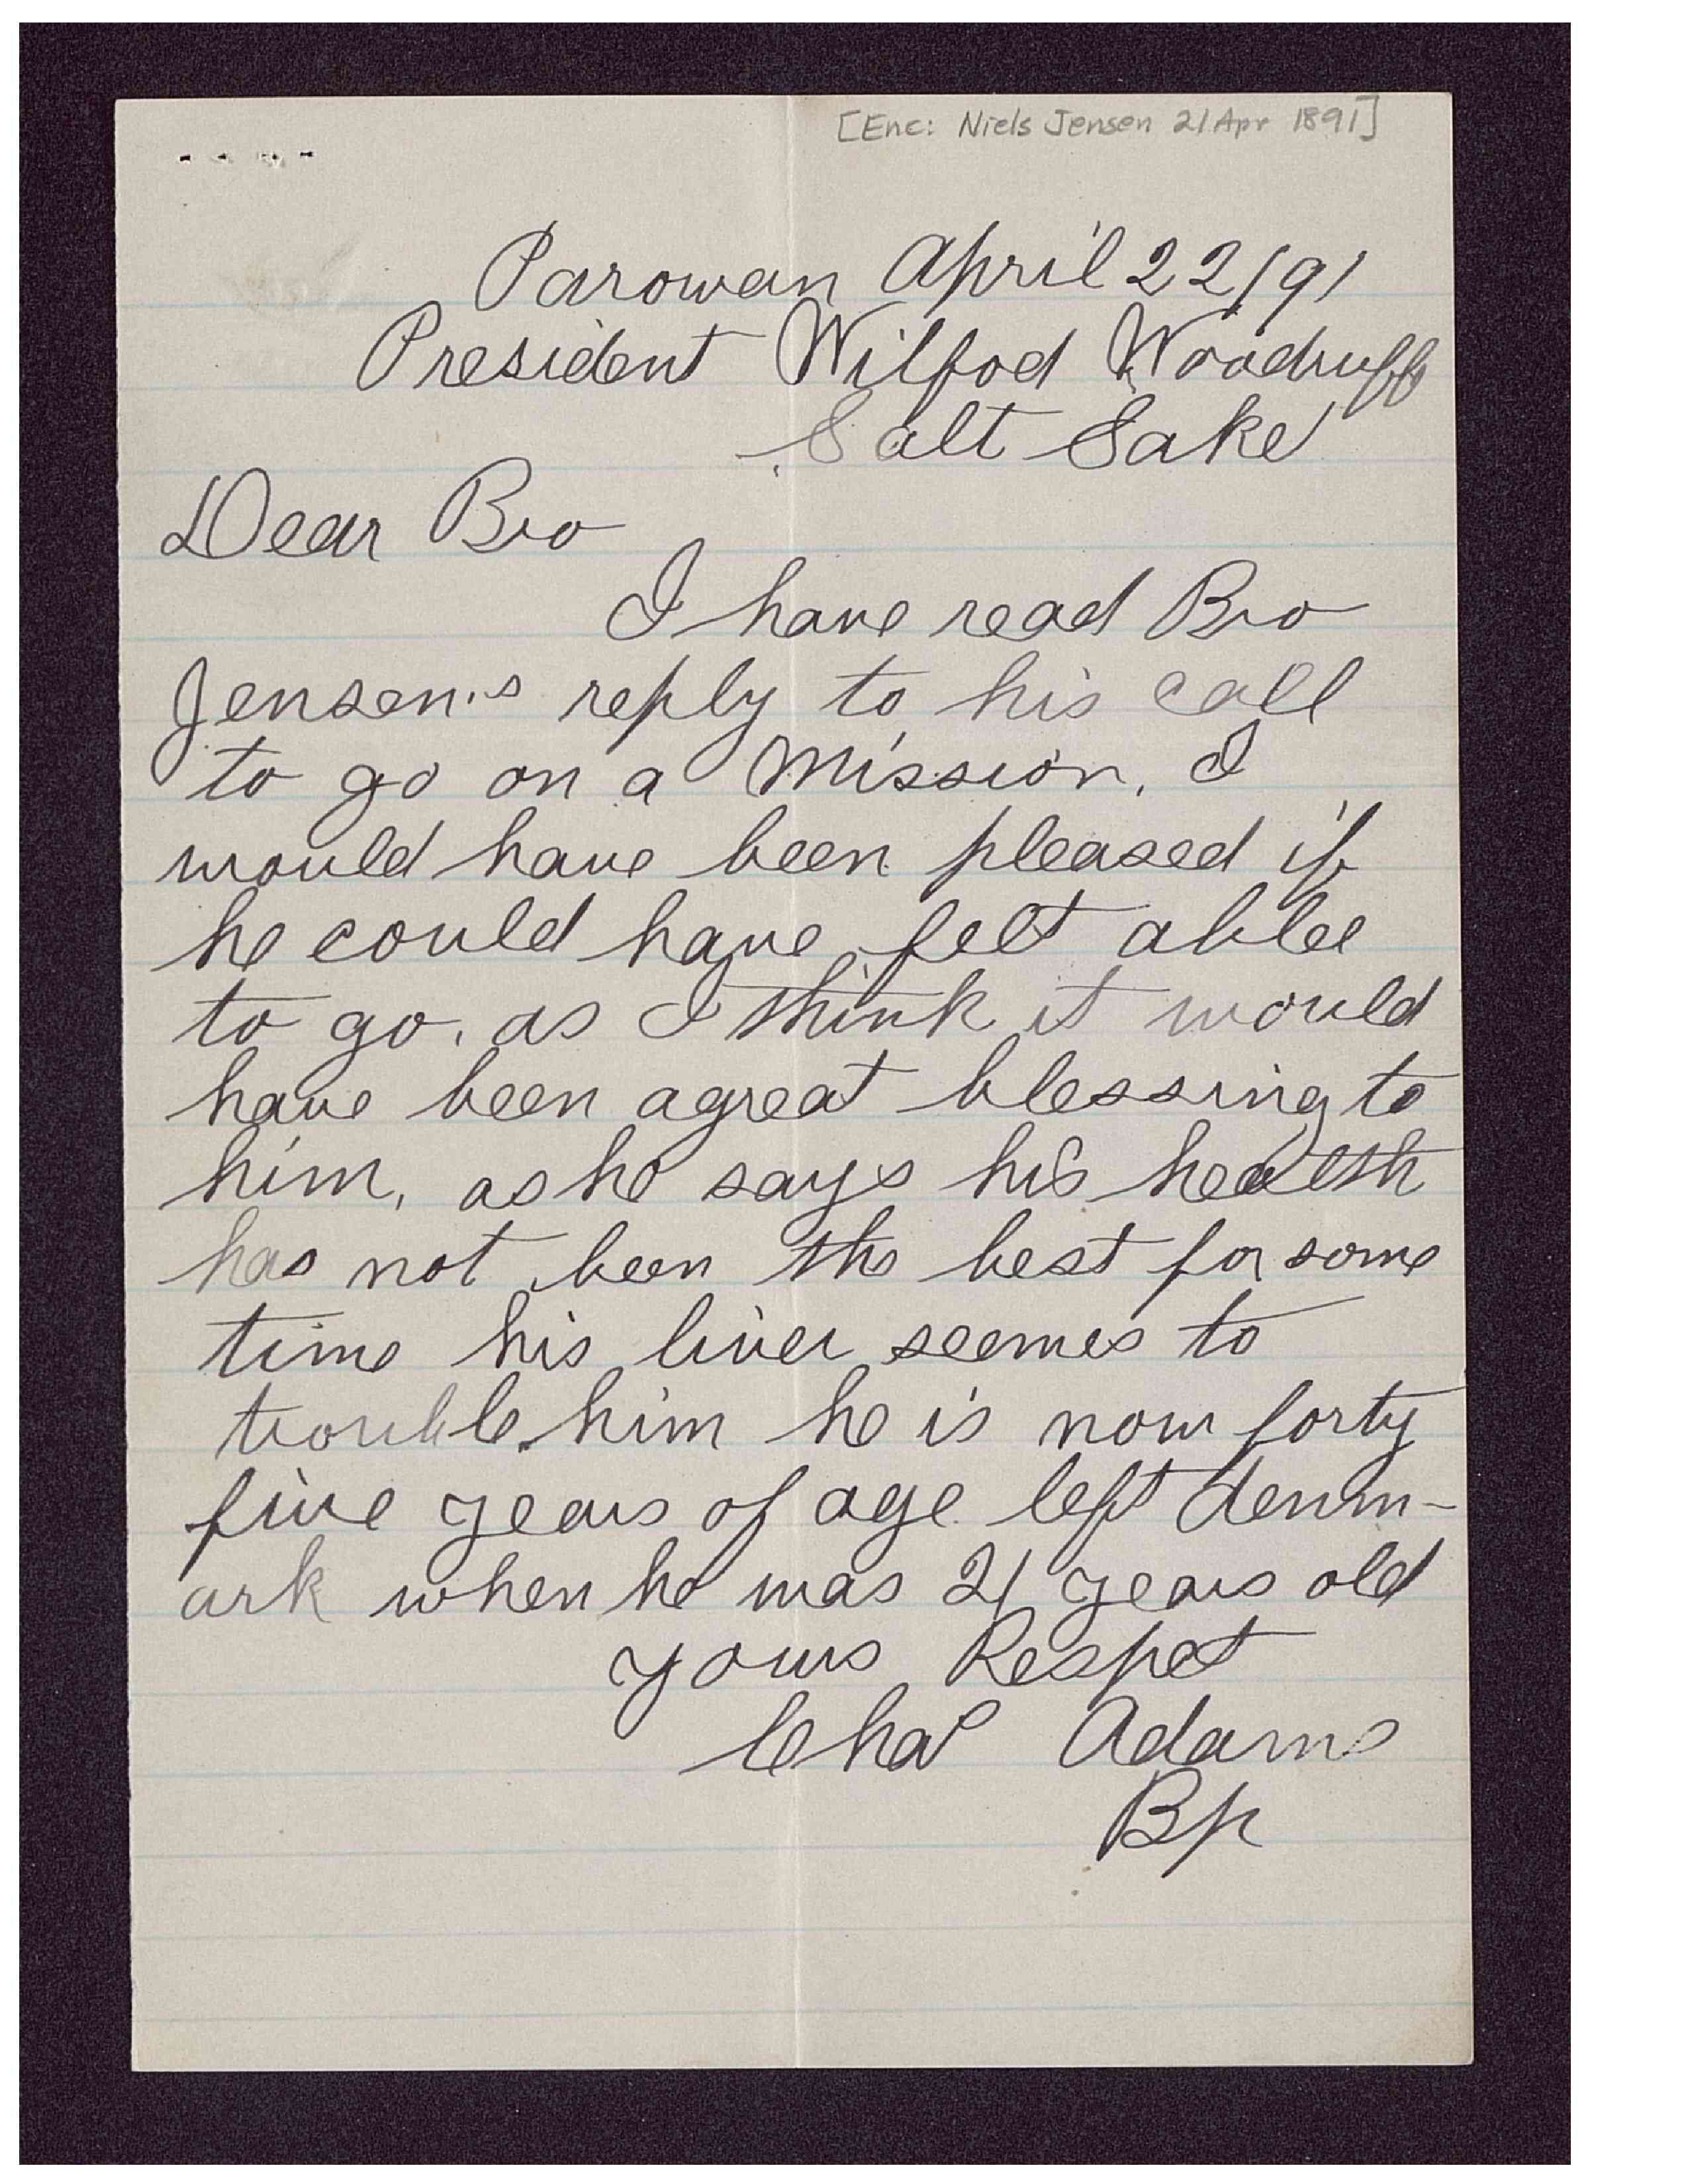 [Enc: Niels Jensen 21 Apr 1891]
Parowan April 22/91
President Wilfod Woodruff
Salt Lake
Dear Bro
I have read Bro
Jensen's reply to his call
to go on a Mission, I
would have been pleased if
he could have felt ablee
to go, as I think it would
have been agreat blessing to
him, as he says his health
has not been the best for some
time his liver seemes to
trouble him he is now forty
five years of age left denm-
ark when he was 21 years old
yours Respet
Chas Adams
Bp